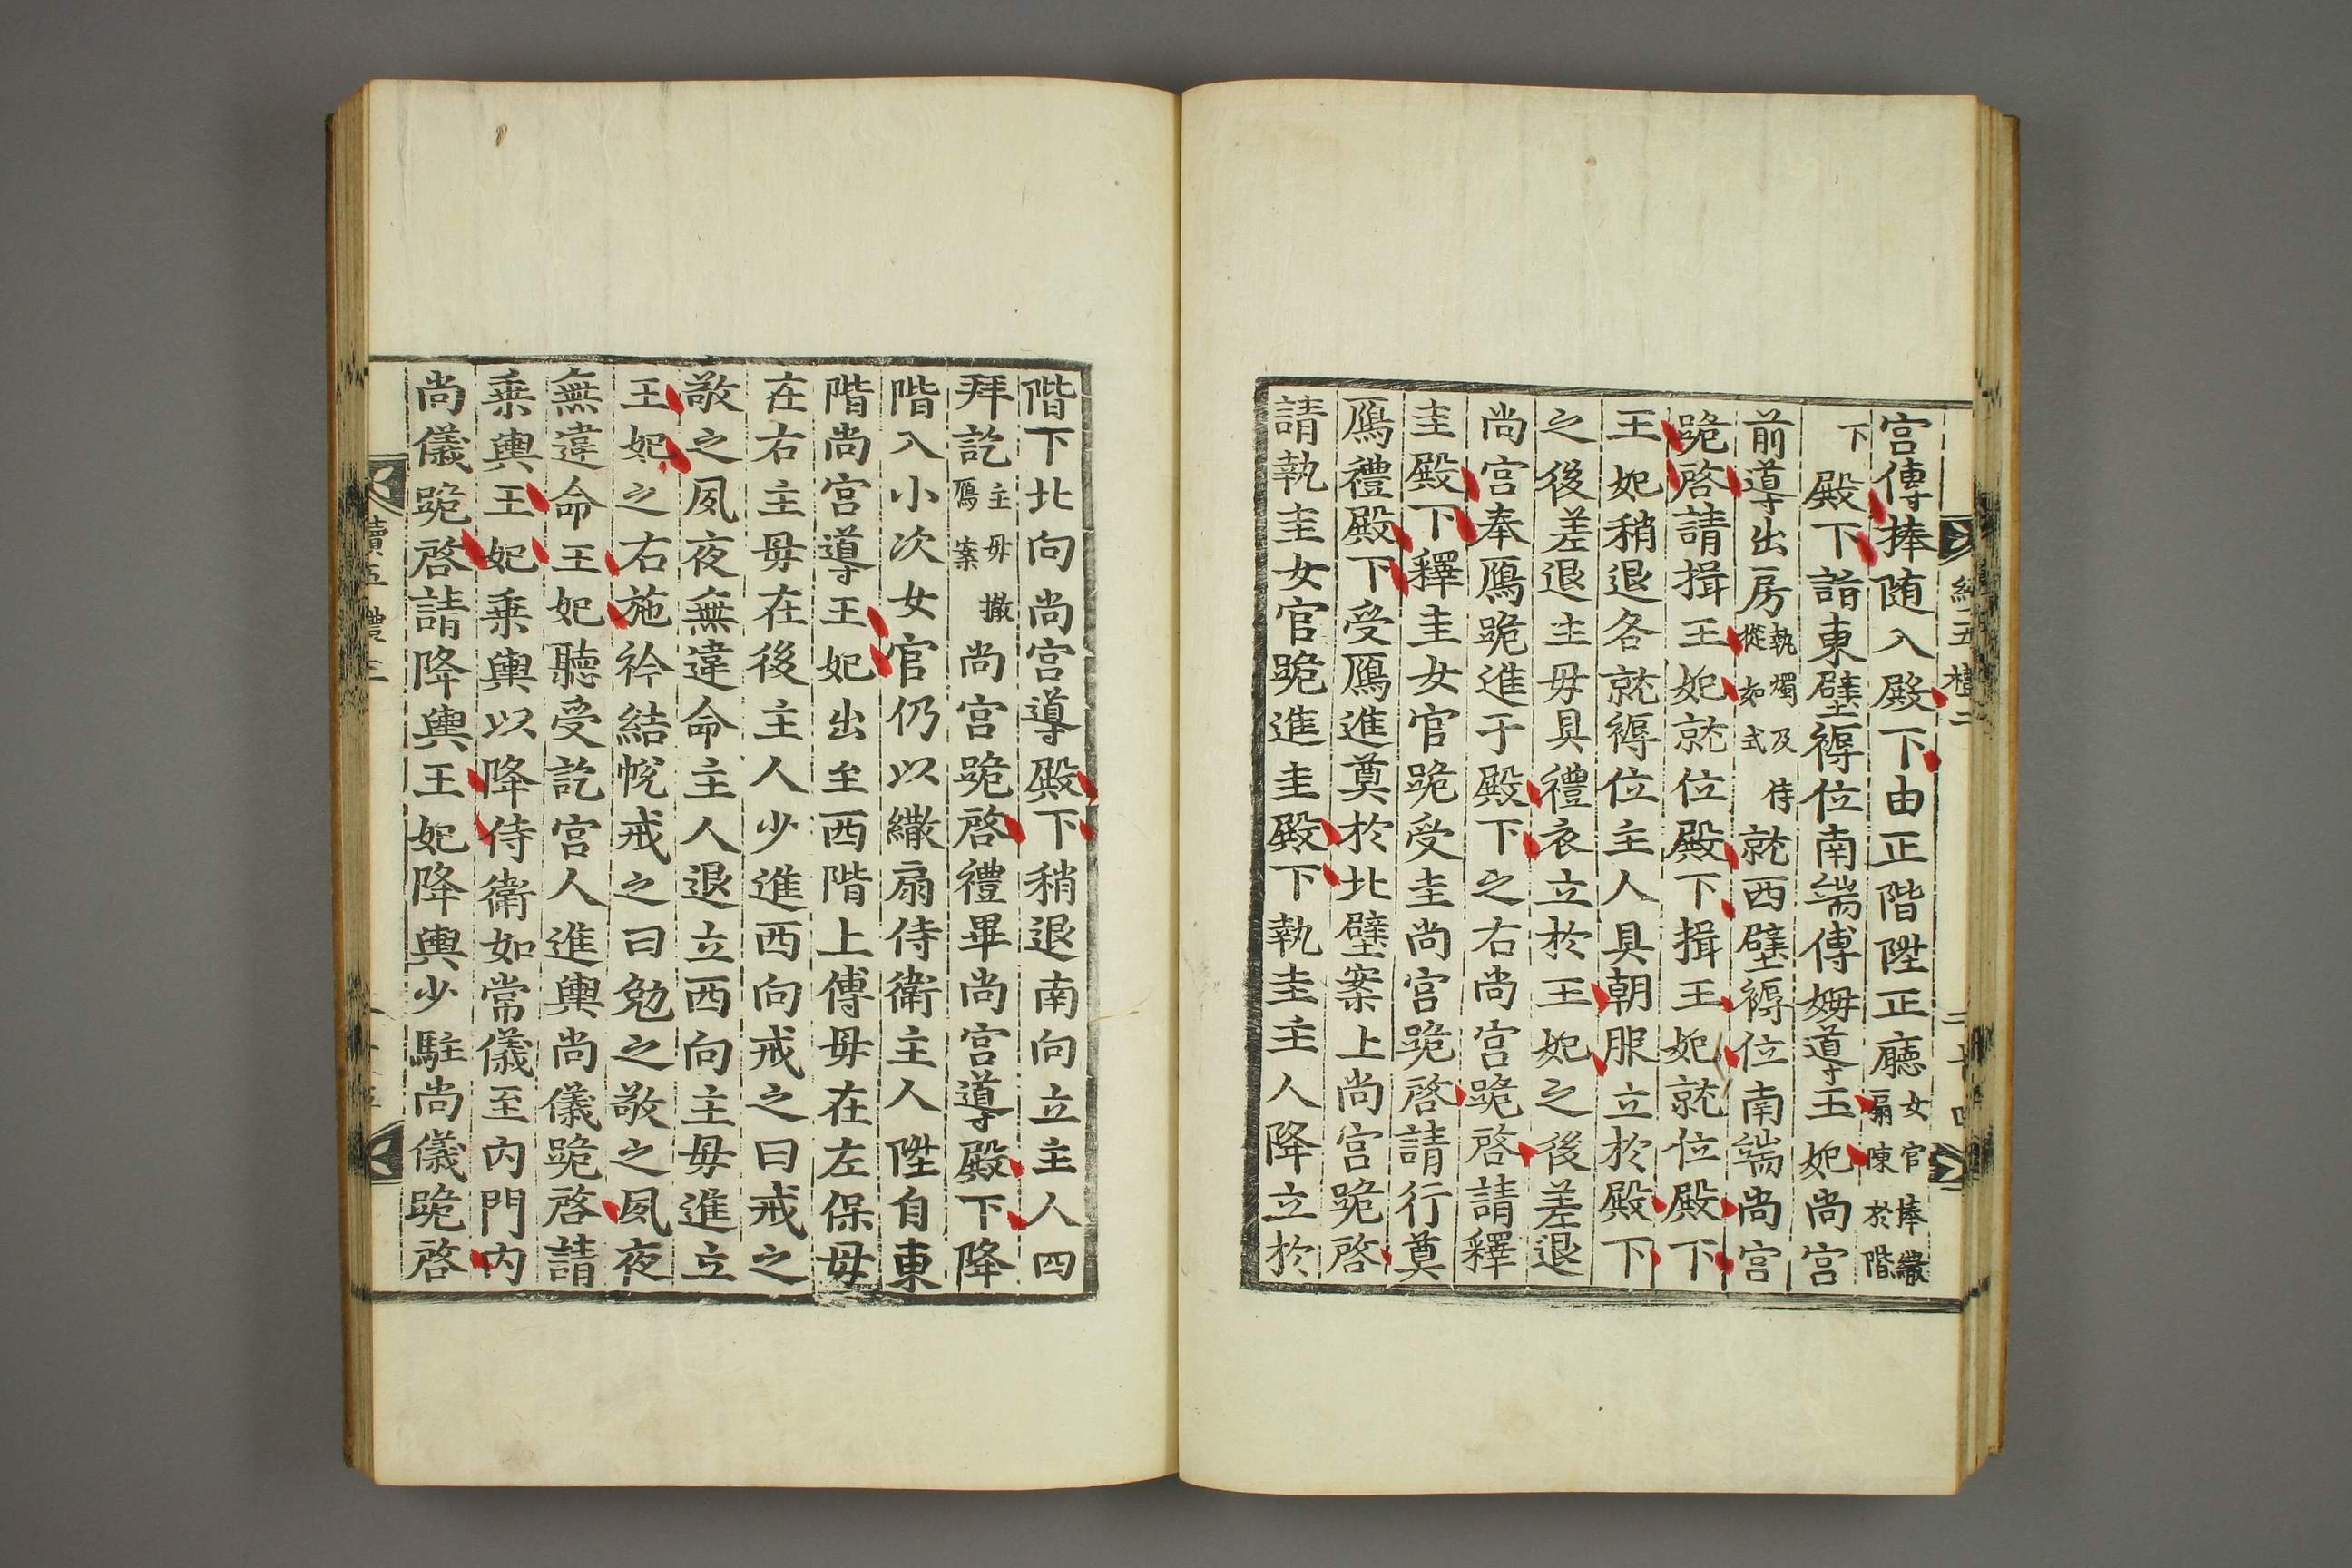 續五禮二
二十四
宮傳捧随入殿下由正階陞正廳女官捧繖扇陳於階
下殿下詣東壁褥位南端傅姆導王妃尚宮
前導出房執燭及侍從如式就西壁褥位南端尚宮
跪啓請揖王妃就位殿下揖王妃就位殿下
王妃稍退各就褥位主人具朝服立於殿下
之後差退主毋具禮衣立於王妃之後差退
尚宮奉鴈跪進于殿下之右尚宮跪啓請釋
圭殿下釋圭女官跪受圭尚宮跪啓請行奠
鴈禮殿下受鴈進奠於北壁案上尚宮跪啓
請執圭女官跪進圭殿下執圭主人降立於
階下北向尚宮導殿下稍退南向立主人四
拜訖主毋撤鴈案尚宮跪啓禮畢尚宮導殿下降
階入小次女官仍以繖扇侍衛主人陞自東
階尚宮導王妃出至西階上傅毋在左保毋
在右主毋在後主人少進西向戒之曰戒之
敬之夙夜無違命主人退立西向主毋進立
王妃之右施衿結帨戒之曰勉之敬之夙夜
無違命王妃聽受訖宮人進輿尚儀跪啓請
乗輿王妃乗輿以降侍衛如常儀至內門內
尚儀跪啓請降輿王妃降輿少駐尚儀跪啓
續五禮